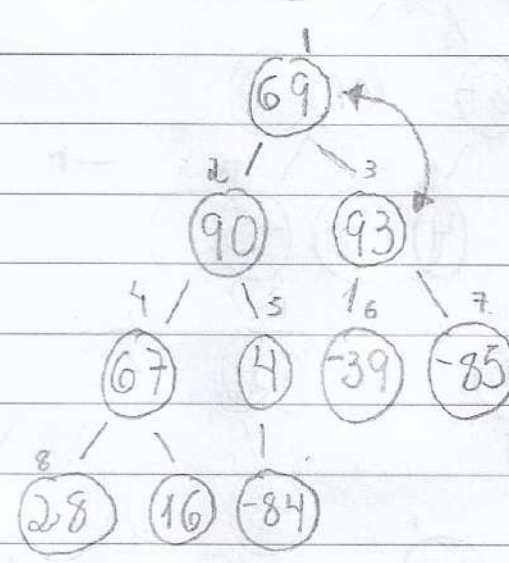 1
69
2 3
90 93
4 5 6 7
67 4 -39 -85
8
28 16 -84